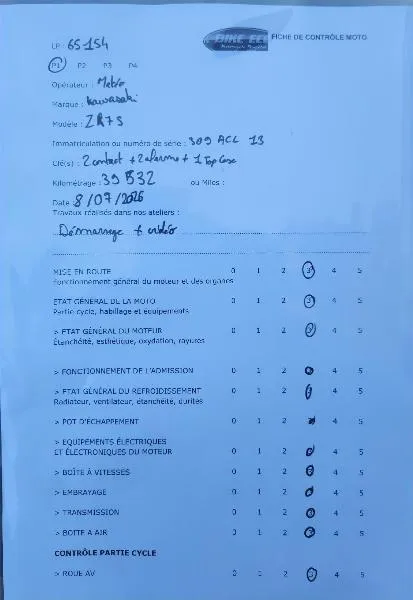 LP : 65-154
BIKE ECO FICHE DE CONTRÔLE MOTO
P1 P2 P3 P4
Opérateur :
Marque : Kawasaki
Modèle : ZR7S
Immatriculation ou numéro de série : 309 ACL 13
Clé(s) : 2 contact + 2 alarme + 1 Top Case
Kilométrage : 39 532 ou Miles :
Date : 8/07/2026
Travaux réalisés dans nos ateliers :
Démarrage + vidéo
MISE EN ROUTE 0 1 2 3 4 5
Fonctionnement général du moteur et des organes
ETAT GÉNÉRAL DE LA MOTO 0 1 2 3 4 5
Partie cycle, habillage et équipements
> ETAT GÉNÉRAL DU MOTEUR 0 1 2 3 4 5
Étanchéité, esthétique, oxydation, rayures
> FONCTIONNEMENT DE L'ADMISSION 0 1 2 3 4 5
> ETAT GÉNÉRAL DU REFROIDISSEMENT 0 1 2 3 4 5
Radiateur, ventilateur, étanchéité, durites
> POT D'ÉCHAPPEMENT 0 1 2 3 4 5
> EQUIPEMENTS ÉLECTRIQUES
ET ÉLECTRONIQUES DU MOTEUR 0 1 2 3 4 5
> BOÎTE À VITESSES 0 1 2 3 4 5
> EMBRAYAGE 0 1 2 3 4 5
> TRANSMISSION 0 1 2 3 4 5
> BOITE A AIR 0 1 2 3 4 5
CONTRÔLE PARTIE CYCLE
> ROUE AV 0 1 2 3 4 5